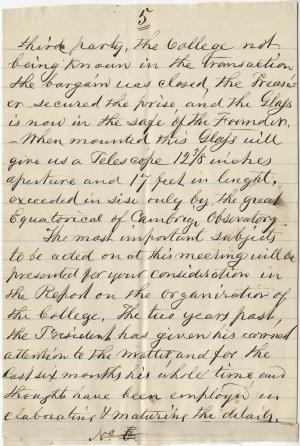 5
third party, the College not
being known in the transaction
the bargain was closed, the Treasur
er secured the prise, and the Glass
is now in the safe of the Founder.
- When mounted this Glass will
give us a Telescope 12 3/8 inches
aperture and 17 feet in lenght,
exceeded in sise only by the great
Equatorical of Cambrige Observatory
The most important subjects
to be acted on at this meeting will be
presented for your consideration in
the Report on the organization of
the College. The two years past,
the President has given his
attention to the matter and for the
last six months his whole time and
thought have been employed in
elaborating & maturing the details.
No 6